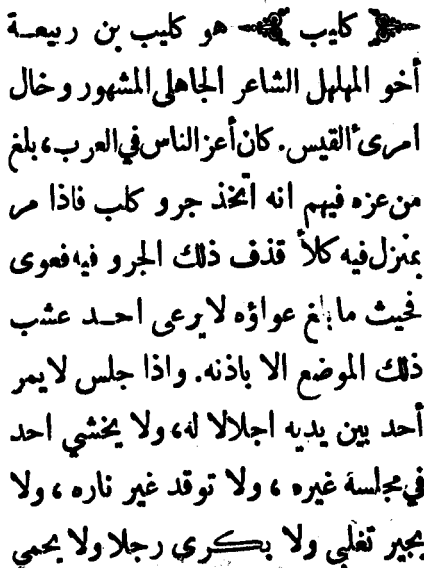 كليب هو كليب بن ربيعة
أخو المهلهل الشاعر الجاهلي المشهور وخال
امرئ القيس. كان أعز الناس في العرب، بلغ
من عزه فيهم انه اتخذ جرو كلب فاذا مر
بمنزل فيه كلأ قذف ذلك الجرو فيه فعوى
فحيث ما بلغ عواؤه لا يرعى احد عشب
ذلك الموضع الا باذنه. واذا جلس لا يمر
أحد بين يديه اجلالا له، ولا يخشي احد
في مجلسة غيره ، ولا توقد غير ناره ، ولا
يجير تغلبي ولا بكرى رجلا ولا يحمي